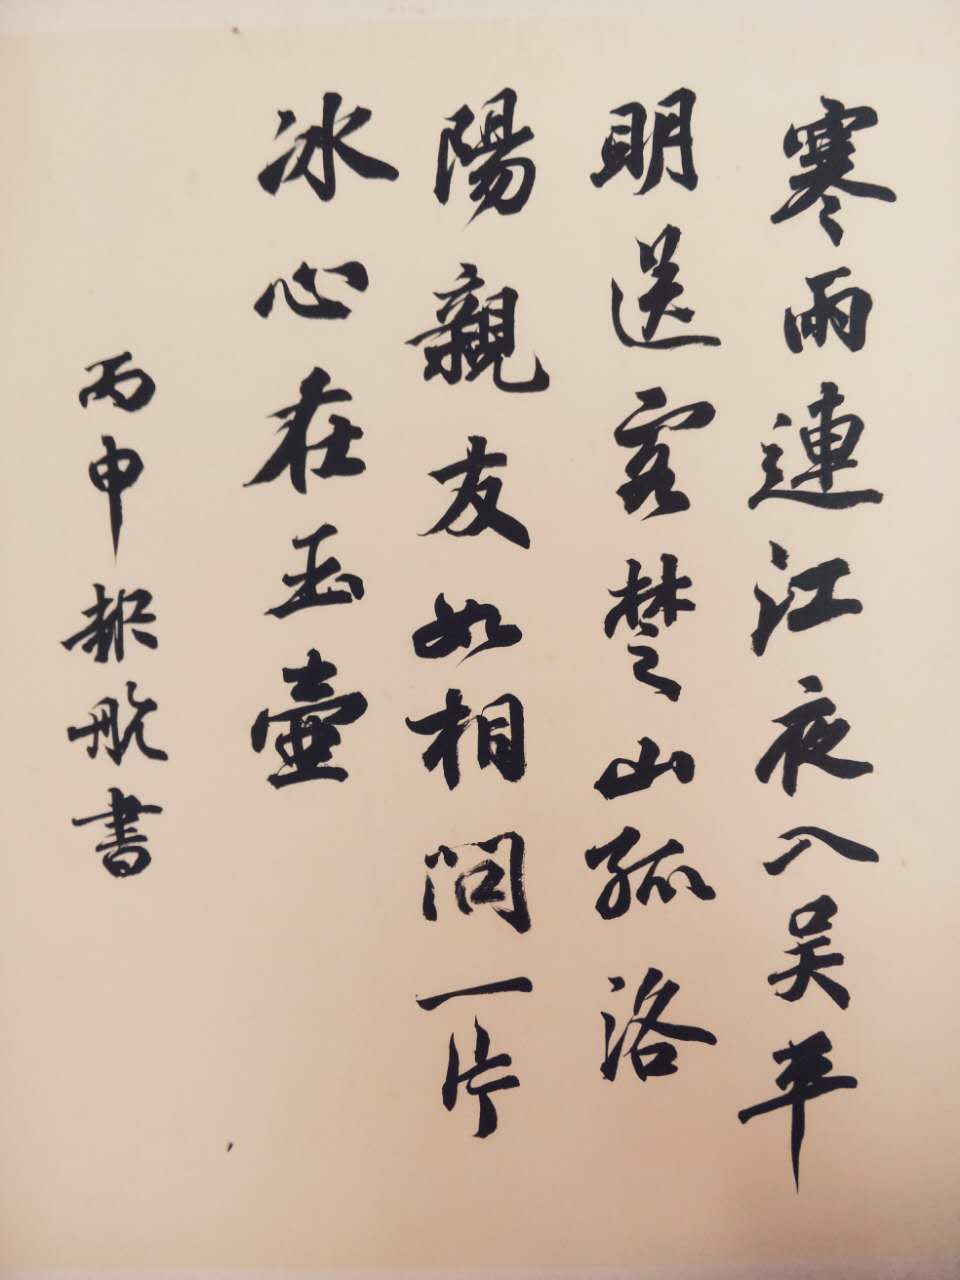 寒雨連江夜入吴平
明送客楚山孤洛
陽親友如相問一片
冰心在玉壺
丙申報航書